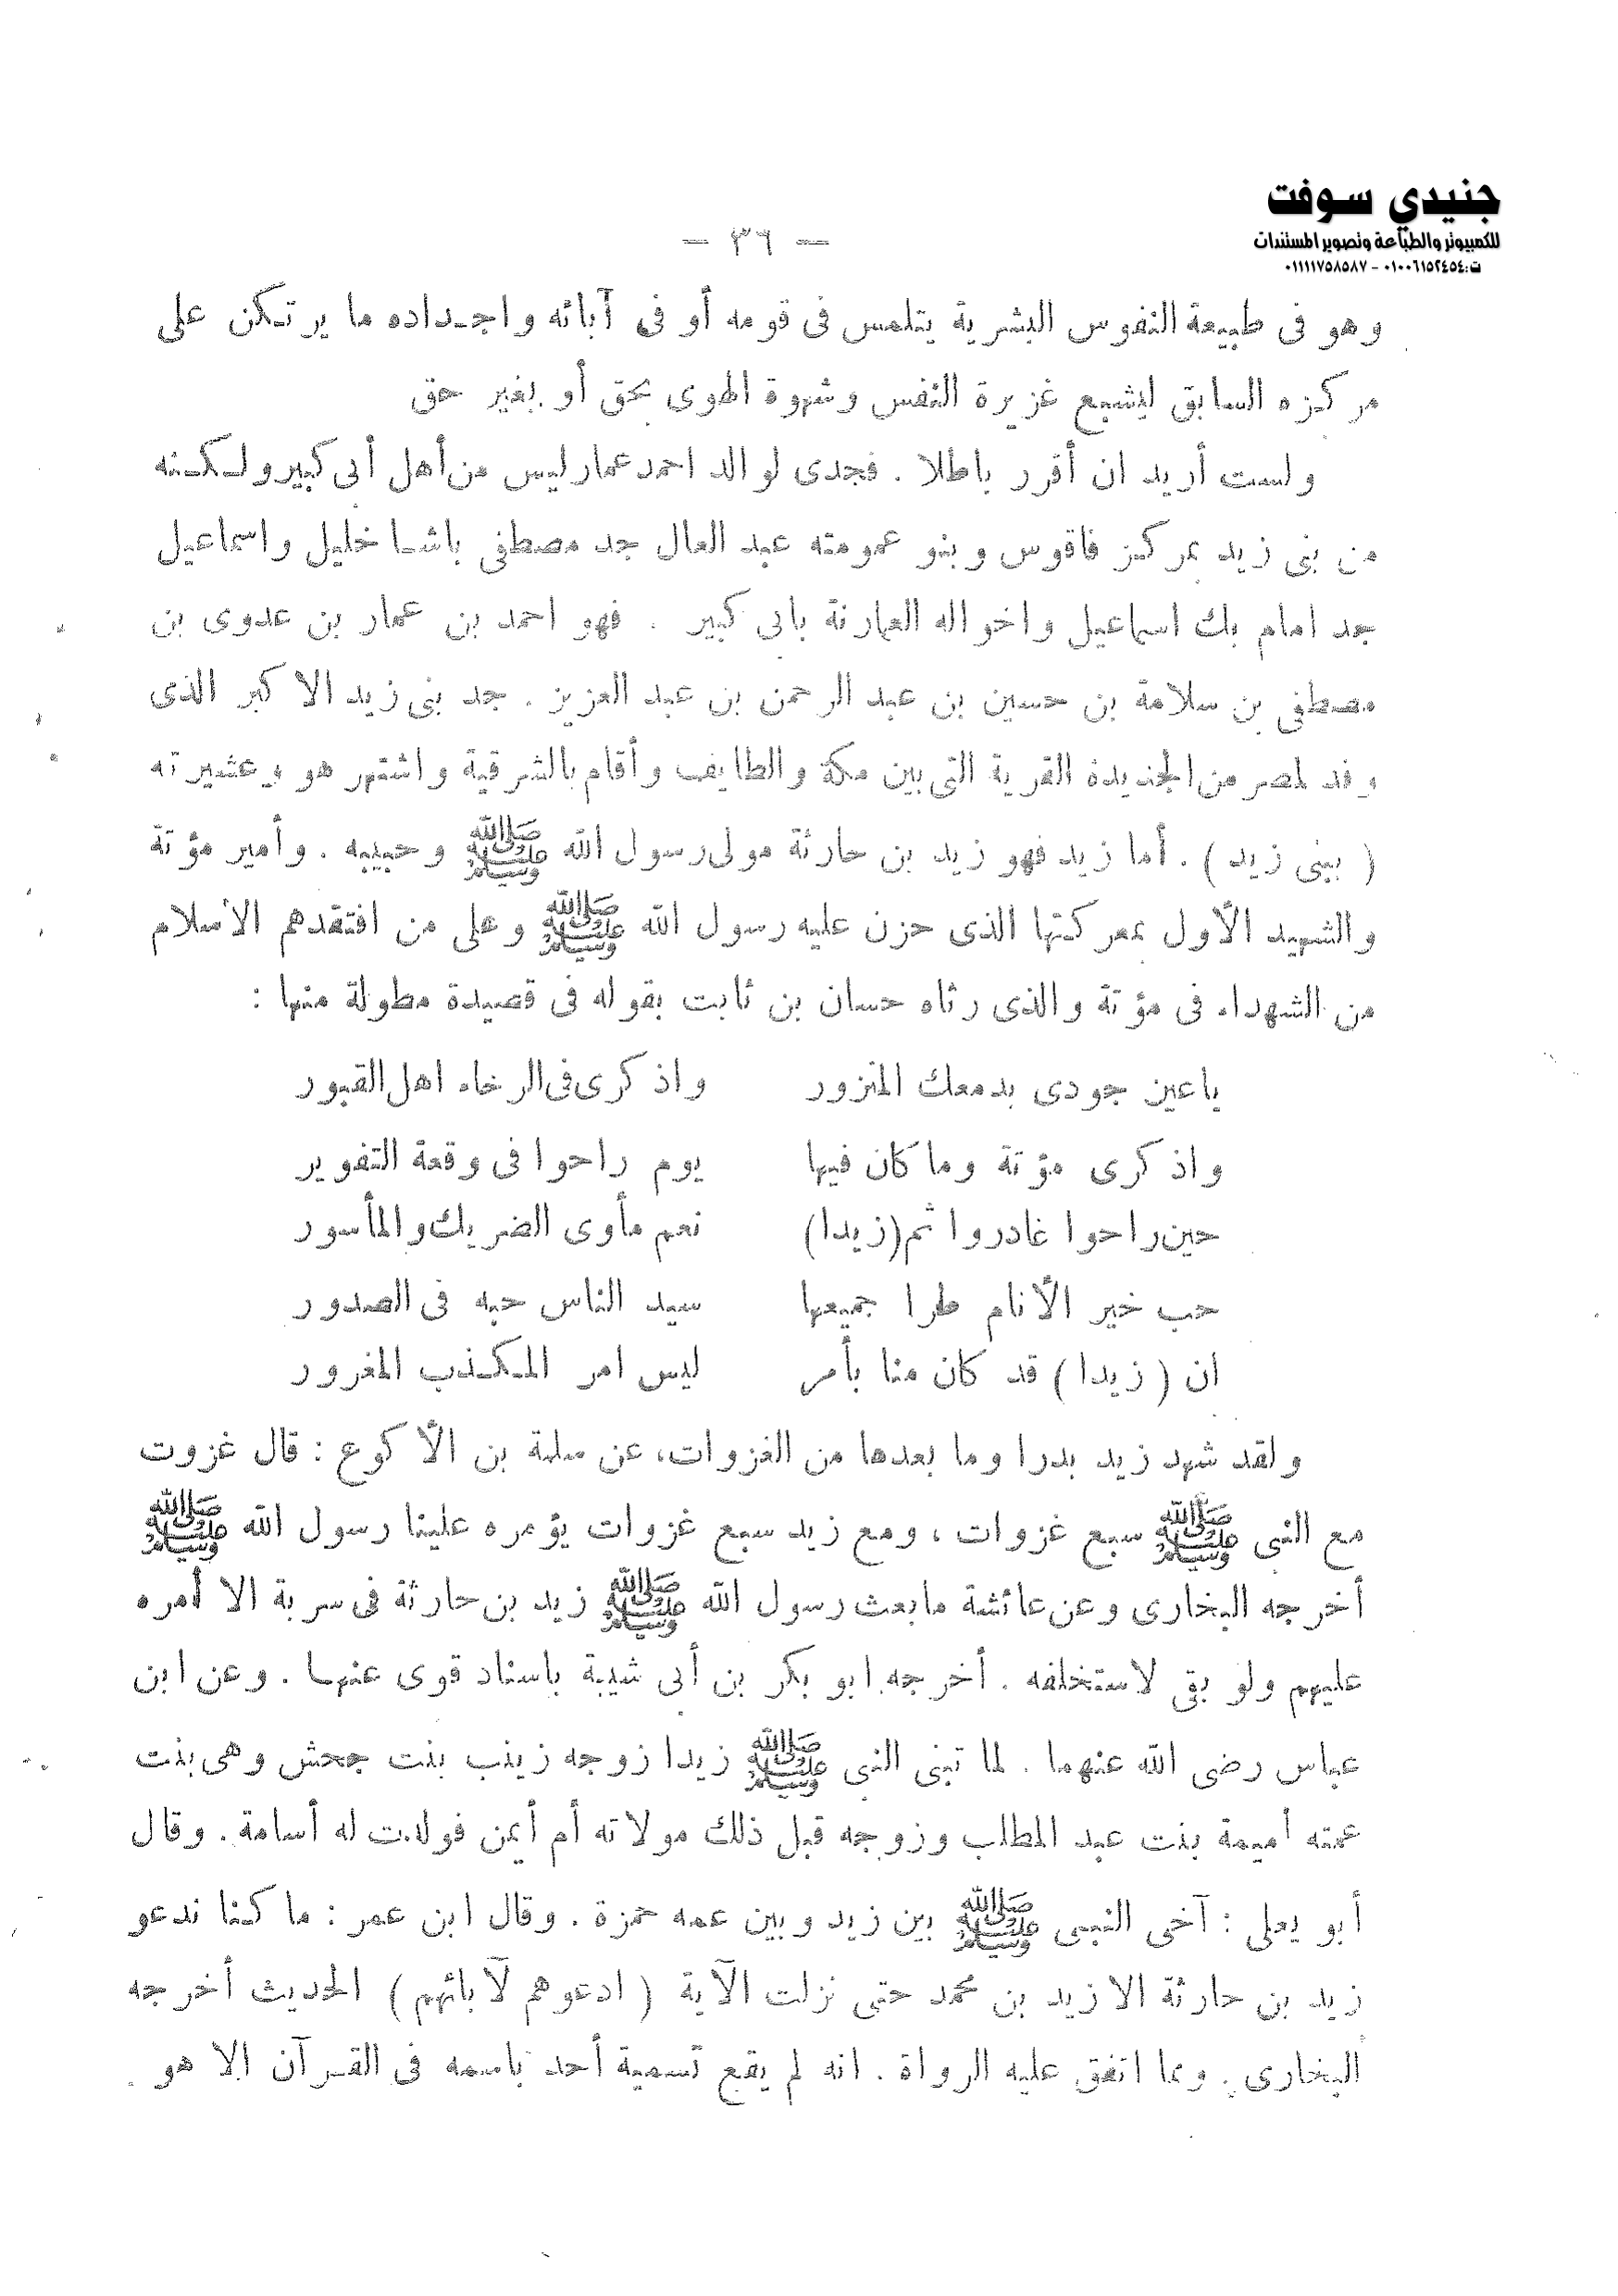 جنيدي سوفت
للكمبيوتر والطباعة وتصوير المستندات
ت: ٠١٠٠٦١٥٢٤٥٤ - ٠١١١١٧٥٨٥٨٧
— ٣٦ —
وهو فى طبيعة النفوس البشرية يتلمس فى قومه أو فى آبائه واجـداده ما يرتـكن على
مركزه السابق ليشبع غزيرة النفس وشهوة الهوى بحق أو بغير حق
ولست أريد ان أقرر باطلا . فجدى لوالد احمد عمار ليس من أهل أبى كبير ولـكـنه
من بنى زيد بمركز فاقوس وبنو عمومته عبد العال جد مصطفى باشـا خليل واسماعيل
جد امام بك اسماعيل واخواله العمارنة بابى كبير . فهو احمد بن عمار بن عدوى بن
مصطفى بن سلامة بن حسين بن عبد الرحمن بن عبد العزيز . جد بنى زيد الاكبر الذى
وفد لمصر من الجنديدة القرية التى بين مكة والطايف وأقام بالشرقية واشتهر هو وعشيرته
( ببنى زيد ) . أما زيد فهو زيد بن حارثة مولى رسول الله ﷺ وحبيبه . وأمير مؤتة
والشهيد الأول بمعركتها الذى حزن عليه رسول الله ﷺ وعلى من افتقدهم الأسلام
من الشهداء فى مؤتة والذى رثاه حسان بن ثابت بقوله فى قصيدة مطولة منها :
ياعين جودى بدمعك المنزور واذكرى فى الرخاء اهل القبور
واذكرى مؤتة وما كان فيها يوم راحوا فى وقعة التغوير
حين راحوا غادروا ثم (زيدا) نعم مأوى الضريك والمأسور
حب خير الأنام طرا جميعها سيد الناس حبه فى الصدور
ان ( زيدا ) قد كان منا بأمر ليس امر المـكـذب المغرور
ولقد شهد زيد بدرا وما بعدها من الغزوات، عن سلمة بن الأكوع : قال غزوت
مع النبى ﷺ سبع غزوات ، ومع زيد سبع غزوات يؤمره علينا رسول الله ﷺ
أخرجه البخارى وعن عائشة مابعث رسول الله ﷺ زيد بن حارثة فى سرية الا أمره
عليهم ولو بقى لاستخلفه . أخرجه ابو بكر بن أبى شيبة باسناد قوى عنهـا . وعن ابن
عباس رضى الله عنهما . لما تبنى النبى ﷺ زيدا زوجه زينب بنت جحش وهى بنت
عمته أميمة بنت عبد المطلب وزوجه قبل ذلك مولاته أم أيمن فولدت له أسامة . وقال
أبو يعلى : آخى النبى ﷺ بين زيد وبين عمه حمزة . وقال ابن عمر : ما كنا ندعو
زيد بن حارثة الا زيد بن محمد حتى نزلت الآية ( ادعوهم لآبائهم ) الحديث أخرجه
البخارى . ومما اتفق عليه الرواة . انه لم يقع تسمية أحد باسمه فى القـرآن الا هو .